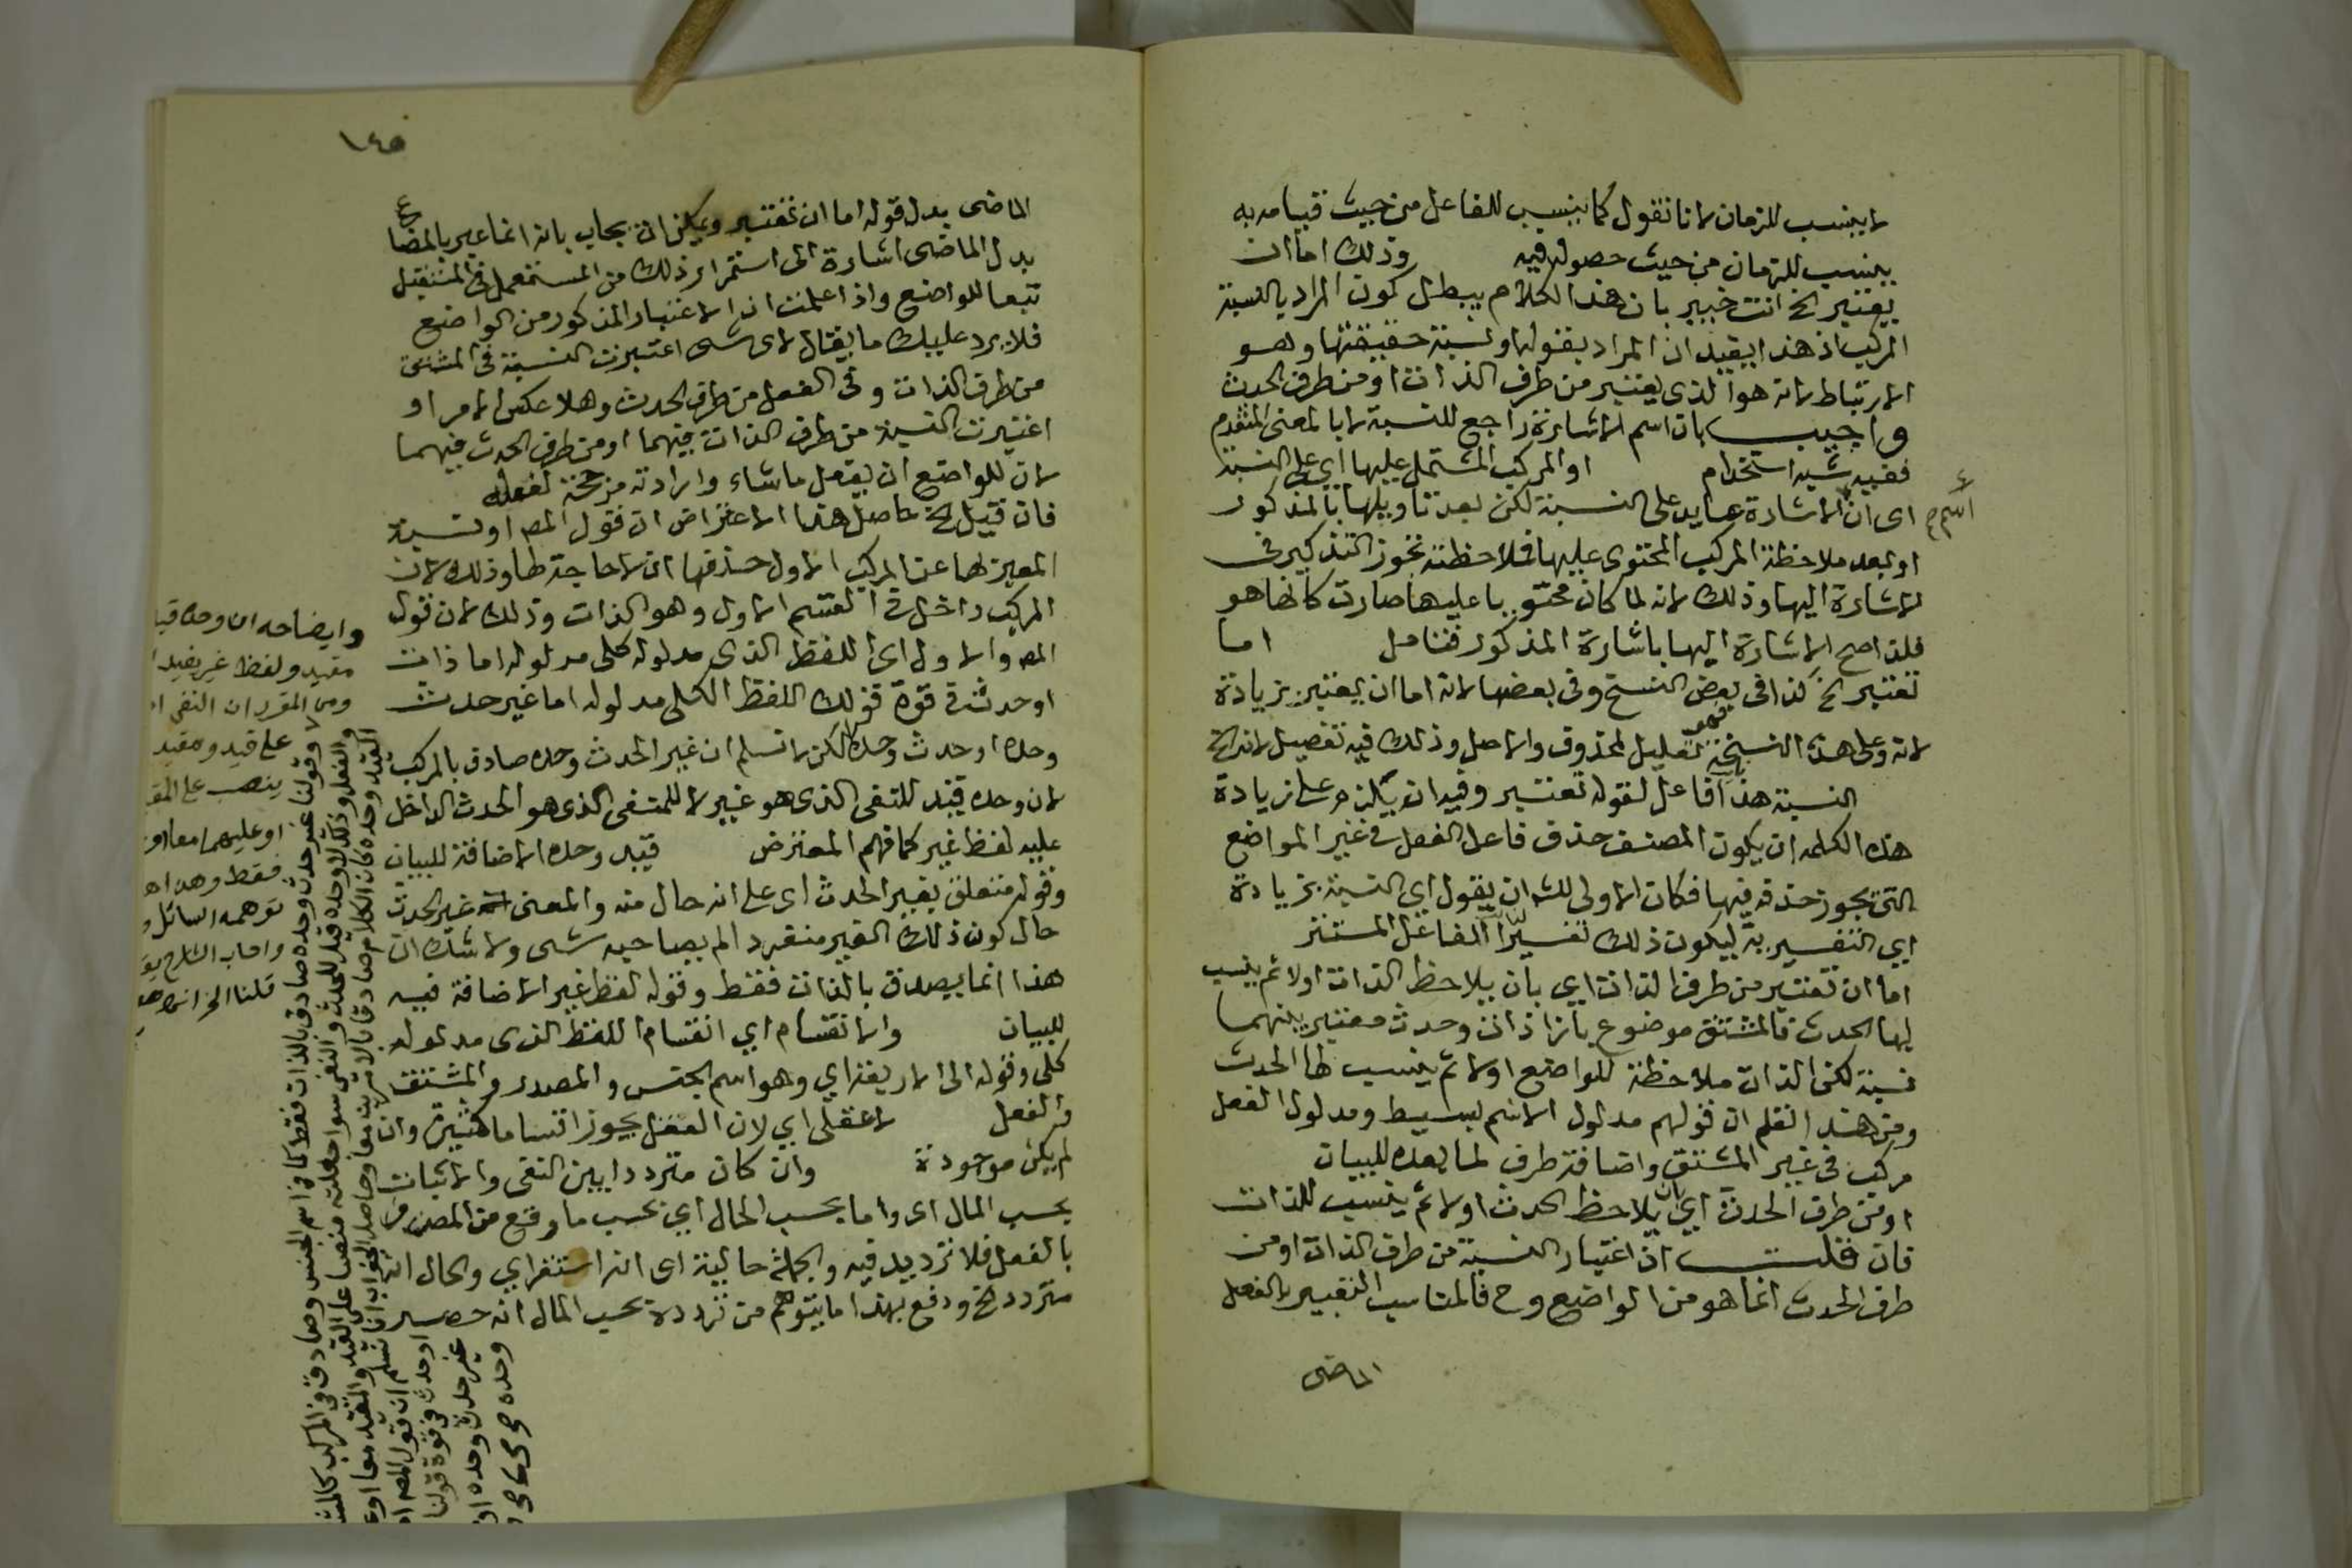 لا ينسب للزمان لانا نقول كما ينسب للفاعل من حيث قيامه به
ينسب للزمان من حيث حصوله فيه وذلك اما ان
يعتبر الخ انت خبير بان هذا الكلام يبطل كون المراد بالنسبة
المركب اذ هذا يفيد ان المراد بقوله او نسبة حقيقتها وهو
الارتباط لانه هو الذى يعتبر من طرف الذات او من طرف الحدث
واجيب بان اسم الاشارة راجع للنسبة لا بالمعنى المتقدم
ففيه شبه استخدام او المركب المشتمل عليها اي على النسبة
اى ان الاشارة عايد على النسبة لكن بعد تاويلها بالمذكور
اسم
او بعد ملاحظة المركب المحتوى عليها فلاحظته تجوز التذكير فى
الاشارة اليها وذلك لانه لما كان محتويا عليها صارت كانها هو
فلذا صح الاشارة اليها باشارة المذكور فتامل اما
تعتبر الخ كذا فى بعض النسخ وفى بعضها لانه اما ان يعتبر بزيادة
لانه وعلى هذه النسخة فهو تعليل لمحذوف والاصل وذلك فيه تفصيل لانه الخ
النسبة هذا فاعل لقوله تعتبر وفيه انه يلزم على زيادة
هذه الكلمه ان يكون المصنف حذف فاعل الفعل فى غير المواضع
التى يجوز حذفه فيها فكان الاولى للش ان يقول اي النسبة بزيادة
اي التفسيرية ليكون ذلك تفسيرا للفاعل المستتر
اما ان تعتبر من طرف الذات اي بان يلاحظ الذات اولا ثم ينسب
لها الحدث فالمشتق موضوع بازا ذات وحدث معتبر بينهما
نسبة لكن الذات ملاحظة للواضع اولا ثم ينسب لها الحدث
ومن هذا تعلم ان قولهم مدلول الاسم بسيط ومدلول الفعل
مركب فى غير المشتق واضافة طرف لما بعده للبيان
او من طرف الحدث اي بان يلاحظ الحدث اولا ثم ينسب للذات
فان قلت اذ اعتبار النسبة من طرف الذات او من
طرف الحدث انما هو من الواضع وح فالمناسب التعبير بالفعل
الماضى
١٤٥
الماضى بدل قوله اما ان تعتبر ويمكن ان يجاب بانه انما عبر بالمضارع
بدل الماضى اشارة الى استمرار ذلك من المستعمل فى المستقبل
تبعا للواضع واذا علمت ان الاعتبار المذكور من الواضع
فلا يرد عليك ما يقال لاى شى اعتبرت النسبة فى المشتق
من طرف الذات وفى الفعل من طرف الحدث وهلا عكس الامر او
اعتبرت النسبة من طرف الذات فيهما او من طرف الحدث فيهما
لان للواضع ان يفعل ما شاء وارادته مرجحة لفعله
فان قيل الخ حاصل هذا الاعتراض ان قول المص او نسبة
المعبر لها عن المركب الاول حذفها اى لا حاجة لها وذلك لان
المركب داخل فى القسم الاول وهو الذات وذلك لان قول
المص والاول اى اللفظ الذى مدلوله كلى مدلوله اما ذات
او حدث فى قوة قولك اللفظ الكلى مدلوله اما غير حدث
وحده او حدث وحده لكن لا نسلم ان غير الحدث وحده صادق بالمركب
لان وحده قيد للنفى الذى هو غير لا للمنفى الذى هو الحدث الداخل
عليه لفظ غير كما فهم المعترض قيد وحده الاضافة للبيان
وقوله متعلق بغير الحدث اى على انه حال منه والمعنى غير الحدث
حال كون ذلك الغير منفردا لم يصاحبه شى ولا شك ان
هذا انما يصدق بالذات فقط وقوله لفظ غير الاضافة فيه
للبيان والانقسام اي انقسام اللفظ الذى مدلوله
كلى وقوله الى الاربعة اي وهو اسم الجنس والمصدر والمشتق
والفعل لا عقلى اي لان العقل يجوز اقساما كثيرة وان
لم يكن موجودة وان كان مترددا بين النفى والاثبات
بحسب المال اى واما بحسب الحال اي بحسب ما وقع من المص
بالفعل فلا ترديد فيه والجملة حالية اى انه استقراي والحال انه
متردد الخ ودفع بهذا ما يتوهم من تردده بحسب المال انه حصر
وايضاحه ان وحده قيد
مقيد ولفظ غير يفيد
ومن المقرر ان النفى
على قيد ومقيد
ينصب على
او عليهما معا
فقط وهذا
توهمه السائل
واجاب الشارح
قلنا الخ
القيد وحده كان الكلام صادقا
وقولنا غير حدث وحده صادق بالذات فقط كما فى اسم الجنس وصادق فى المركب
او حدث فى قوة قولنا
غير حدث وحده
وحده